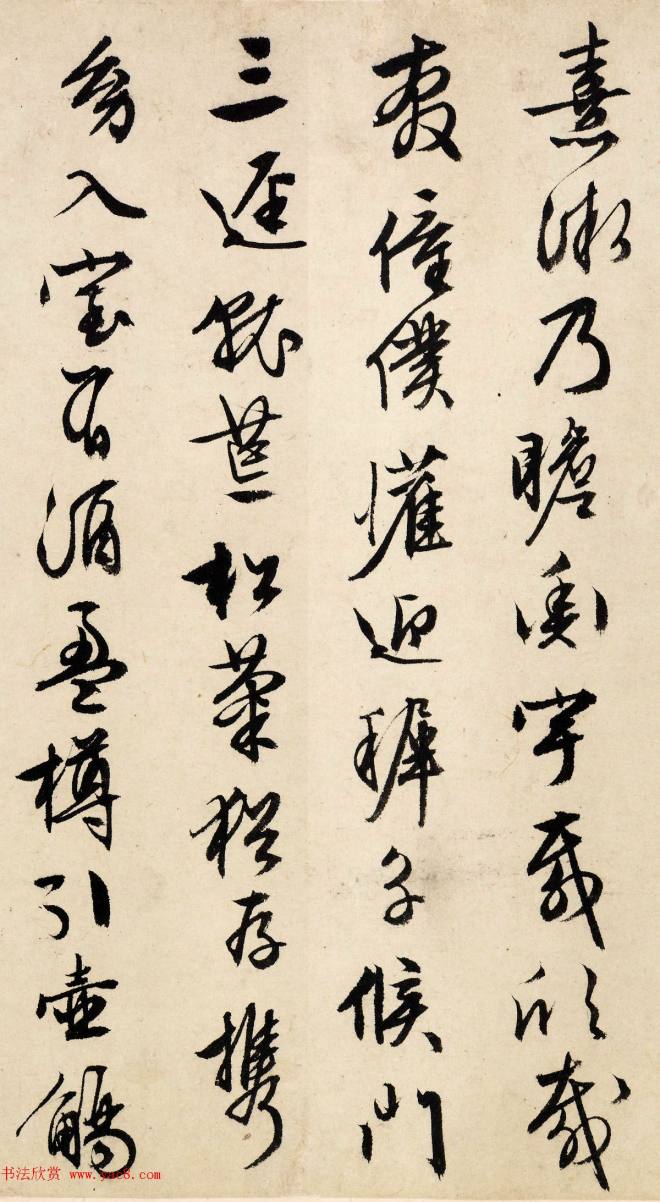 熹微乃瞻衡宇载欣载
奔僮僕懽迎稺子候門
三逕就荒松菊猶存攜
幼入室有酒盈樽引壺觴
书法欣赏 www.yac8.com